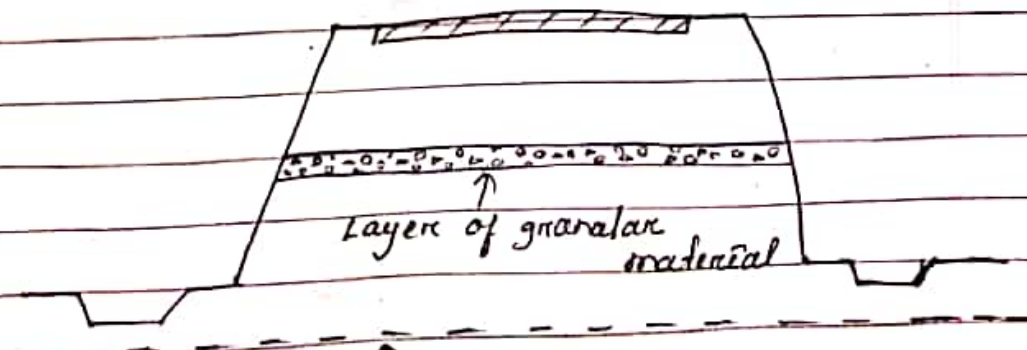 Layer of granalar
material